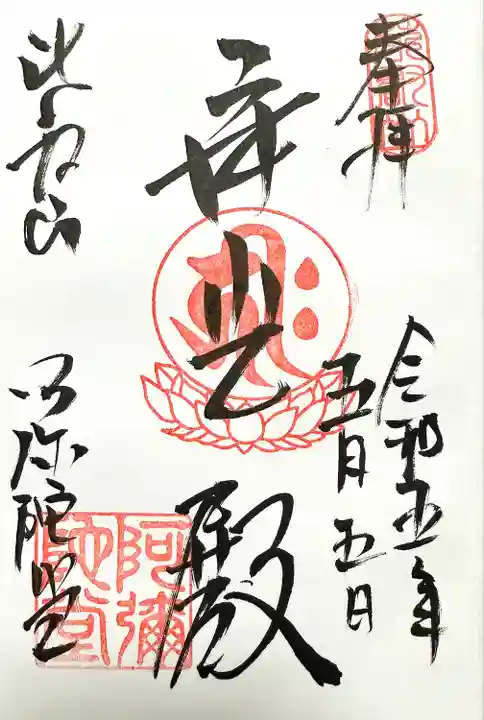 奉拝
令和五年
五月五日
寿光殿
比叡山
阿弥陀堂
阿彌
陀堂